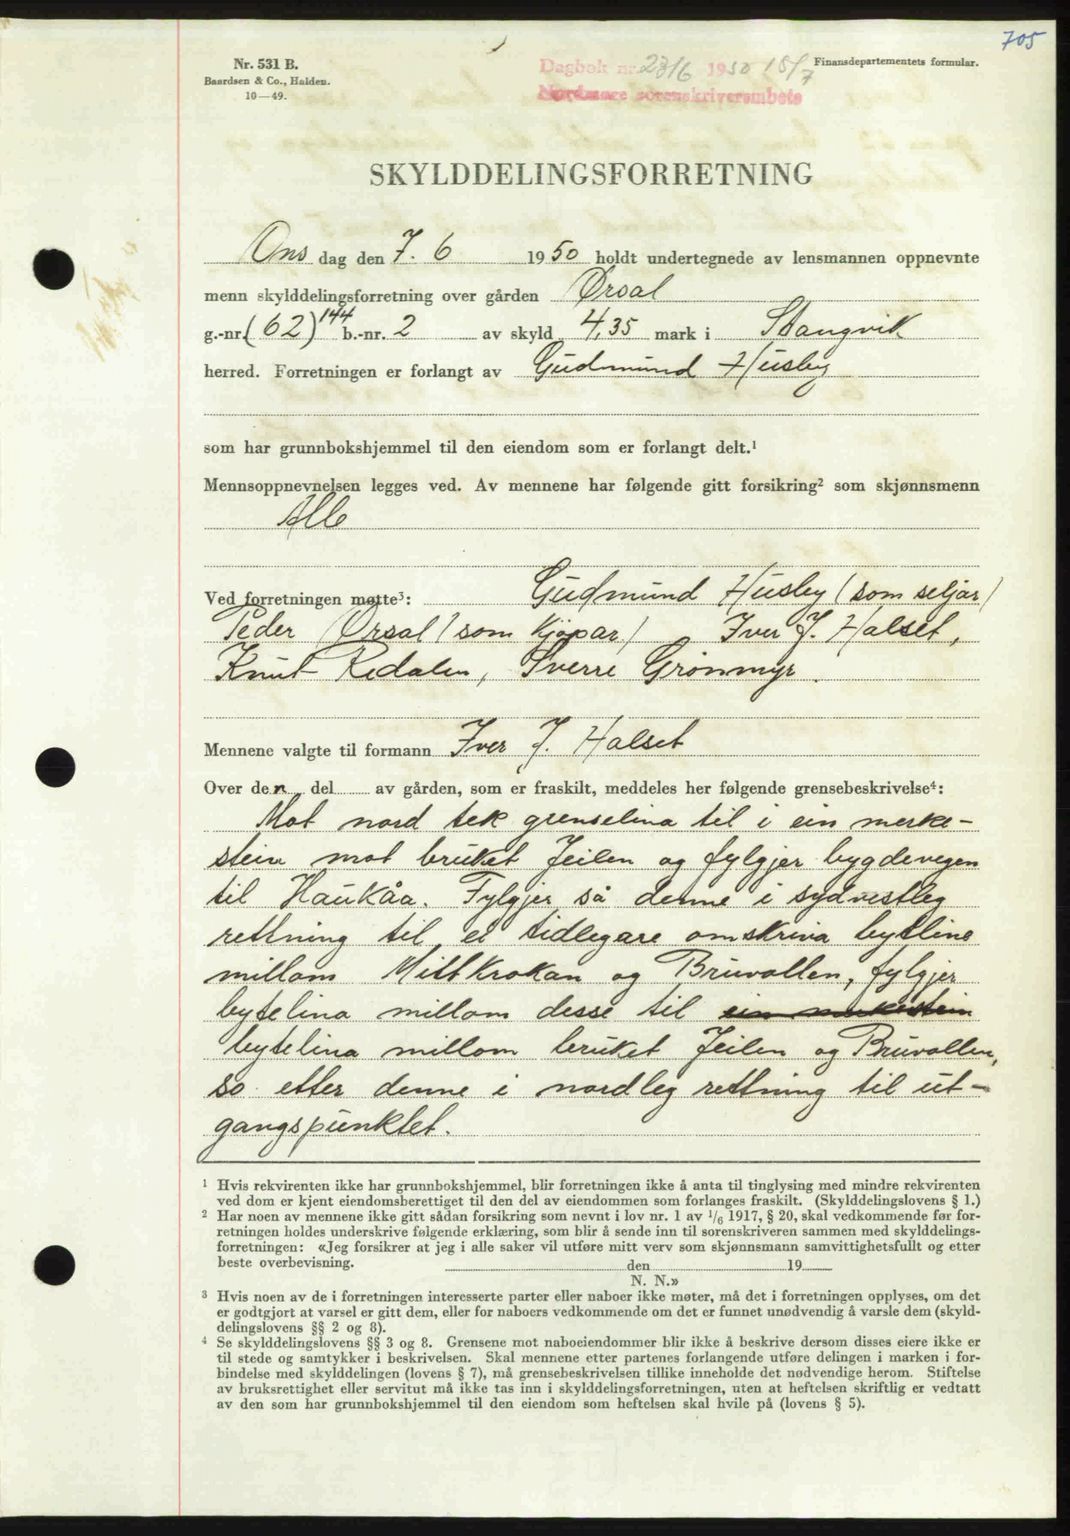 705
Nr. 531 B.
Baardsen & Co., Halden.
10—49.
Dagbok nr. 2316 1950 15/7
Nordmøre sorenskriverembete
Finansdepartementets formular.
SKYLDDELINGSFORRETNING
Ons dag den 7. 6 1950 holdt undertegnede av lensmannen oppnevnte
menn skylddelingsforretning over gården Ørsal
g.-nr. (62) 144 b.-nr. 2 av skyld 4,35 mark i Stangvik
herred. Forretningen er forlangt av Gudmund Husby
som har grunnbokshjemmel til den eiendom som er forlangt delt.¹
Mennsoppnevnelsen legges ved. Av mennene har følgende gitt forsikring² som skjønnsmenn
Alle
Ved forretningen møtte³: Gudmund Husby (som seljar)
Peder Ørsal (som kjøpar) Iver J. Halset,
Knut Redalen, Sverre Grønmyr.
Mennene valgte til formann Iver J. Halset
Over den del av gården, som er fraskilt, meddeles her følgende grensebeskrivelse⁴:
Mot nord tek grenselina til i ein merke-
stein mot bruket Jeilen og fylgjer bygdevegen
til Haukåa. Fylgjer så denne i sydvestleg
rettning til ei tidlegare omskriva bytline
millom Mittkrokan og Bruvollen, fylgjer
bytelina millom desse til ein merkestein
bytelina millom bruket Jeilen og Bruvollen,
so etter denne i nordleg rettning til ut-
gangspunktet.
¹ Hvis rekvirenten ikke har grunnbokshjemmel, blir forretningen ikke å anta til tinglysing med mindre rekvirenten
ved dom er kjent eiendomsberettiget til den del av eiendommen som forlanges fraskilt. (Skylddelingslovens § 1.)
² Har noen av mennene ikke gitt sådan forsikring som nevnt i lov nr. 1 av 1/6 1917, § 20, skal vedkommende før for-
retningen holdes underskrive følgende erklæring, som blir å sende inn til sorenskriveren sammen med skylddelings-
forretningen: «Jeg forsikrer at jeg i alle saker vil utføre mitt verv som skjønnsmann samvittighetsfullt og etter
beste overbevisning. den 19
N. N.»
³ Hvis noen av de i forretningen interesserte parter eller naboer ikke møter, må det i forretningen opplyses, om det
er godtgjort at varsel er gitt dem, eller for naboers vedkommende om det er funnet unødvendig å varsle dem (skyld-
delingslovens §§ 2 og 8).
⁴ Se skylddelingslovens §§ 3 og 8. Grensene mot naboeiendommer blir ikke å beskrive dersom disses eiere ikke er
til stede og samtykker i beskrivelsen. Skal mennene etter partenes forlangende utføre delingen i marken i for-
bindelse med skylddelingen (lovens § 7), må grensebeskrivelsen tillike inneholde det nødvendige herom. Stiftelse
av bruksrettighet eller servitut må ikke tas inn i skylddelingsforretningen, uten at heftelsen skriftlig er vedtatt
av den som har grunnbokshjemmel til den eiendom som heftelsen skal hvile på (lovens § 5).